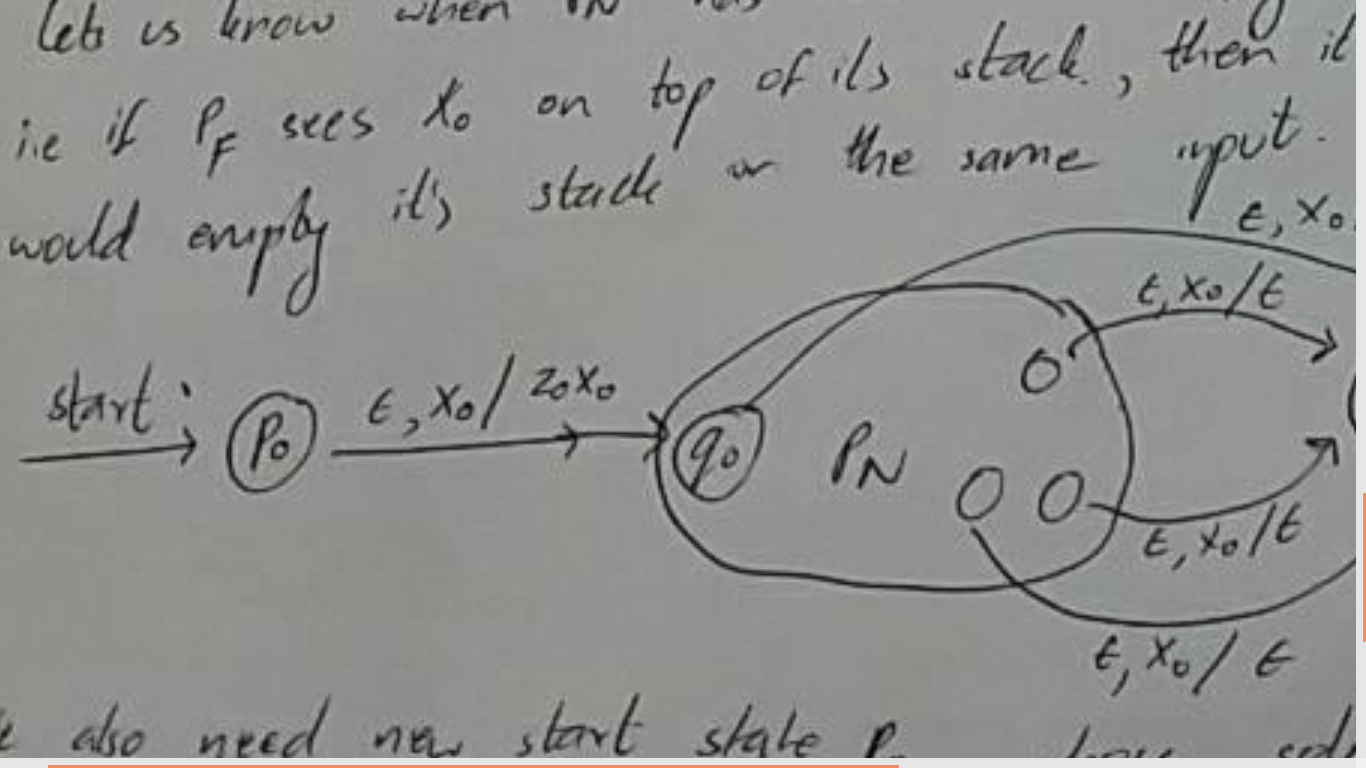 lets us know when PN has
i.e if PF sees X0 on top of its stack, then it
would empty it's stack on the same input.
ε, X0
ε, X0/ε
start
P0
ε, X0/ Z0X0
q0
PN
ε, X0/ε
ε, X0/ ε
also need new start state P0